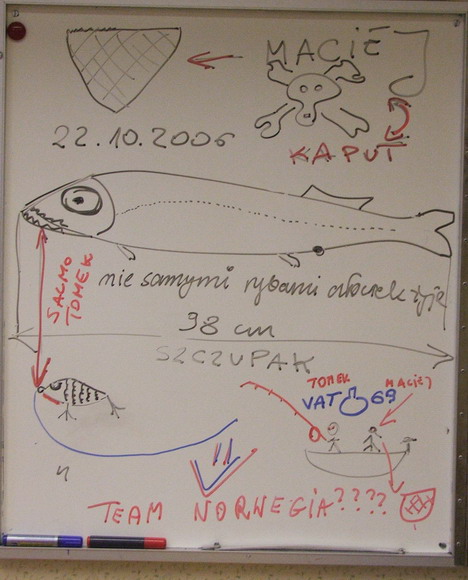 MACIĘ
22.10.2006
KAPUT
SALMO
TOMEK
nie samymi rybami człowiek żyje
98 cm
SZCZUPAK
TOMEK
MACIEJ
VAT 69
TEAM NORWEGIA????